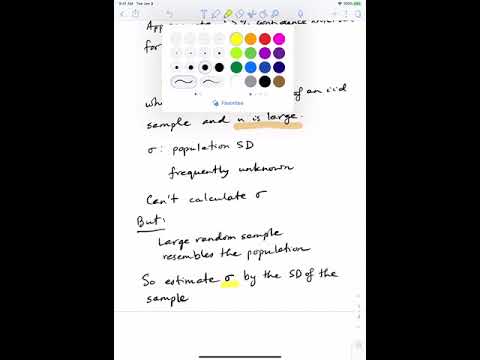 9:41 AM Tue Jan 9
95% confidence
for
Favorites
of an iid
sample and n is large.
σ : population SD
frequently unknown
Can't calculate σ
But:
Large random sample
resembles the population
So estimate σ by the SD of the
sample